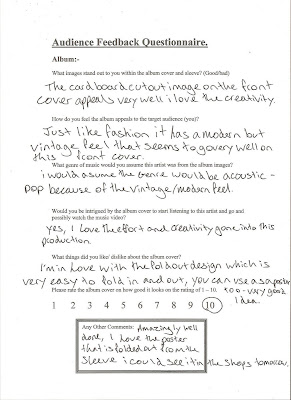 Audience Feedback Questionnaire.
Album:-
What images stand out to you within the album cover and sleeve? (Good/bad)
The cardboard cutout image on the front
cover appeals very well i love the creativity.
How do you feel the album appeals to the target audience (you)?
Just like fashion it has a modern but
vintage feel that seems to go very well on
this front cover.
What genre of music would you assume this artist was from the album images?
i would assume the Genre would be acoustic -
pop because of the vintage/modern feel.
Would you be intrigued by the album cover to start listening to this artist and go and
possibly watch the music video?
yes, I love the effort and creativity gone into this
production.
What things did you like/ dislike about the album cover?
I'm in Love with the fold out design which is
very easy to fold in and out, you can use as a poster
Please rate the album cover on how good it looks on the rating of 1 – 10. too - very good
idea.
1 2 3 4 5 6 7 8 9 10
Any Other Comments: Amazingly well
done, I love the poster
that is folded out from the
sleeve i could see it in the shops tomorrow.